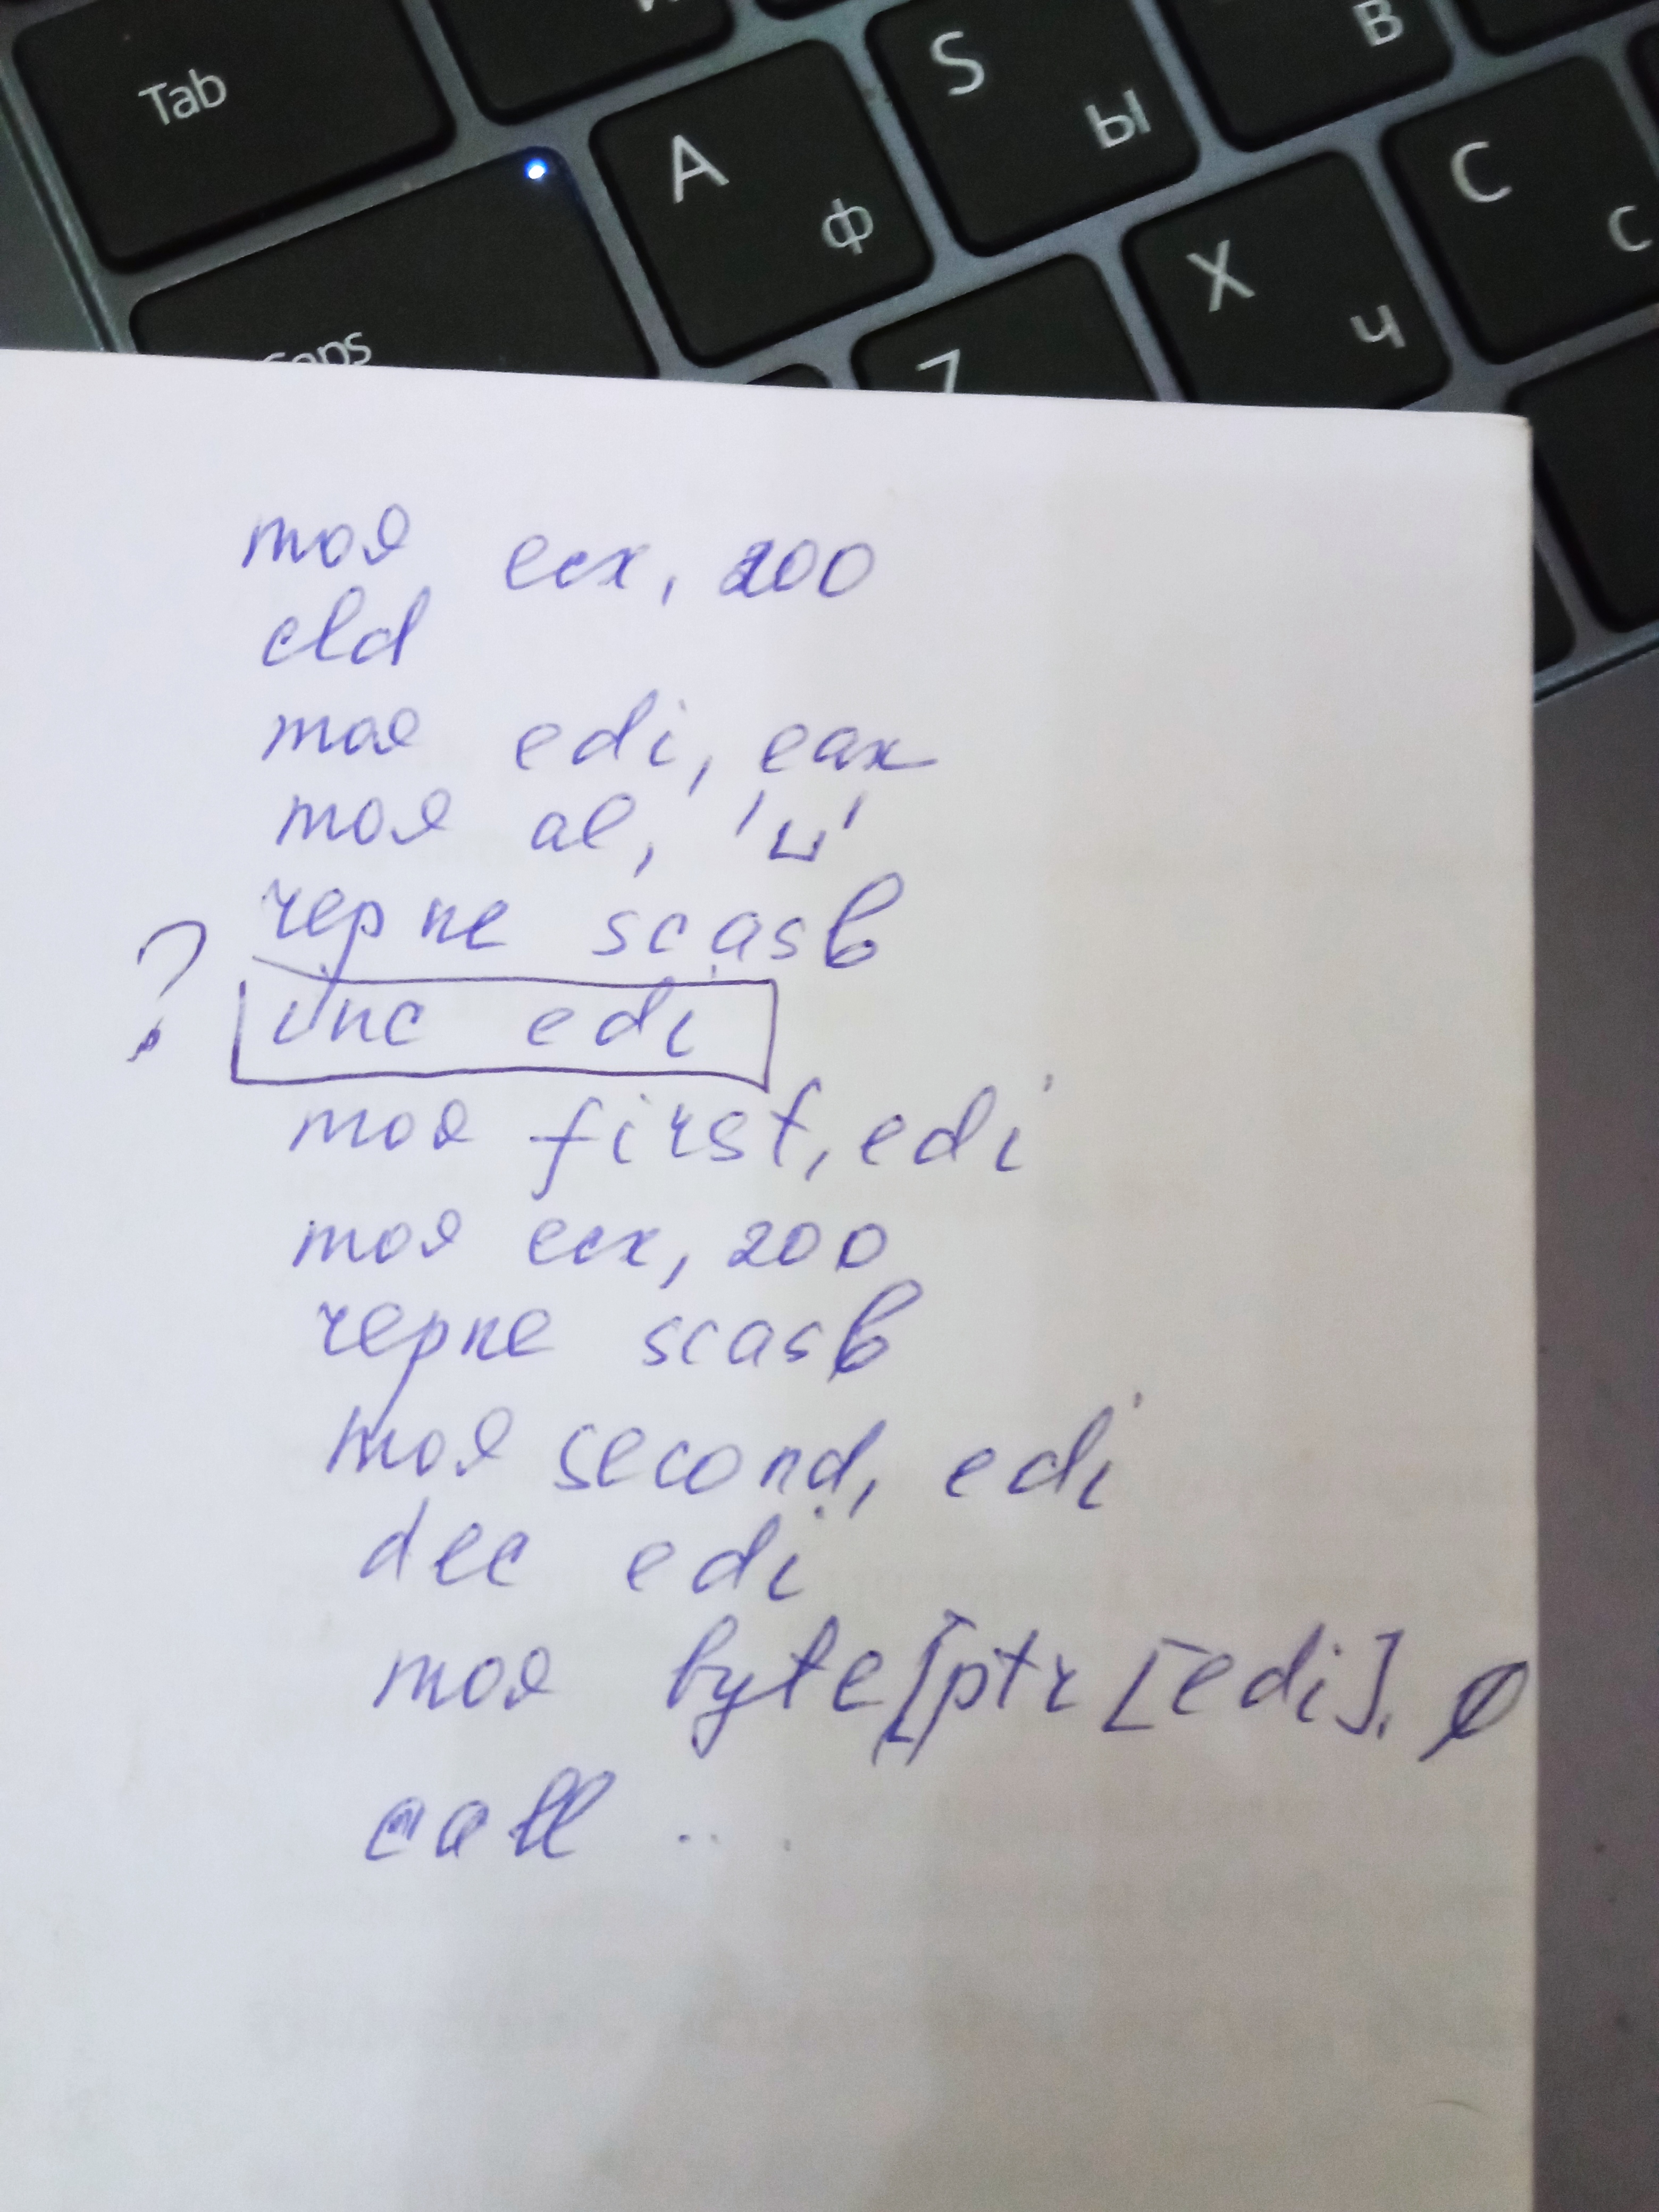 Tab
A ф
S ы
В
C с
X ч
Caps
Z
mov ecx, 200
cld
mov edi, eax
mov al, '␣'
repne scasb
? inc edi
mov first, edi
mov ecx, 200
repne scasb
mov second, edi
dec edi
mov byte[ptr [edi], 0
call ...